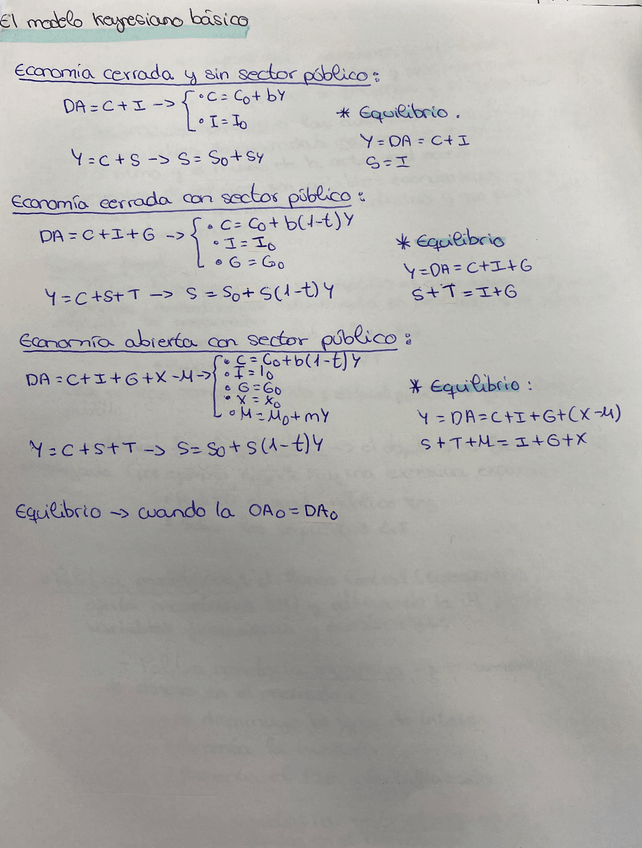 El modelo Keynesiano básico
Economía cerrada y sin sector público:
DA = C + I -> { • C = C₀ + bY
• I = I₀
* Equilibrio.
Y = DA = C + I
S = I
Y = C + S -> S = S₀ + sY
Economía cerrada con sector público:
DA = C + I + G -> { • C = C₀ + b(1-t)Y
• I = I₀
• G = G₀
* Equilibrio
Y = DA = C + I + G
S + T = I + G
Y = C + S + T -> S = S₀ + S(1-t)Y
Economía abierta con sector público:
DA = C + I + G + X - M -> { • C = C₀ + b(1-t)Y
• I = I₀
• G = G₀
• X = X₀
• M = M₀ + mY
* Equilibrio:
Y = DA = C + I + G + (X - M)
S + T + M = I + G + X
Y = C + S + T -> S = S₀ + S(1-t)Y
Equilibrio -> cuando la OA₀ = DA₀